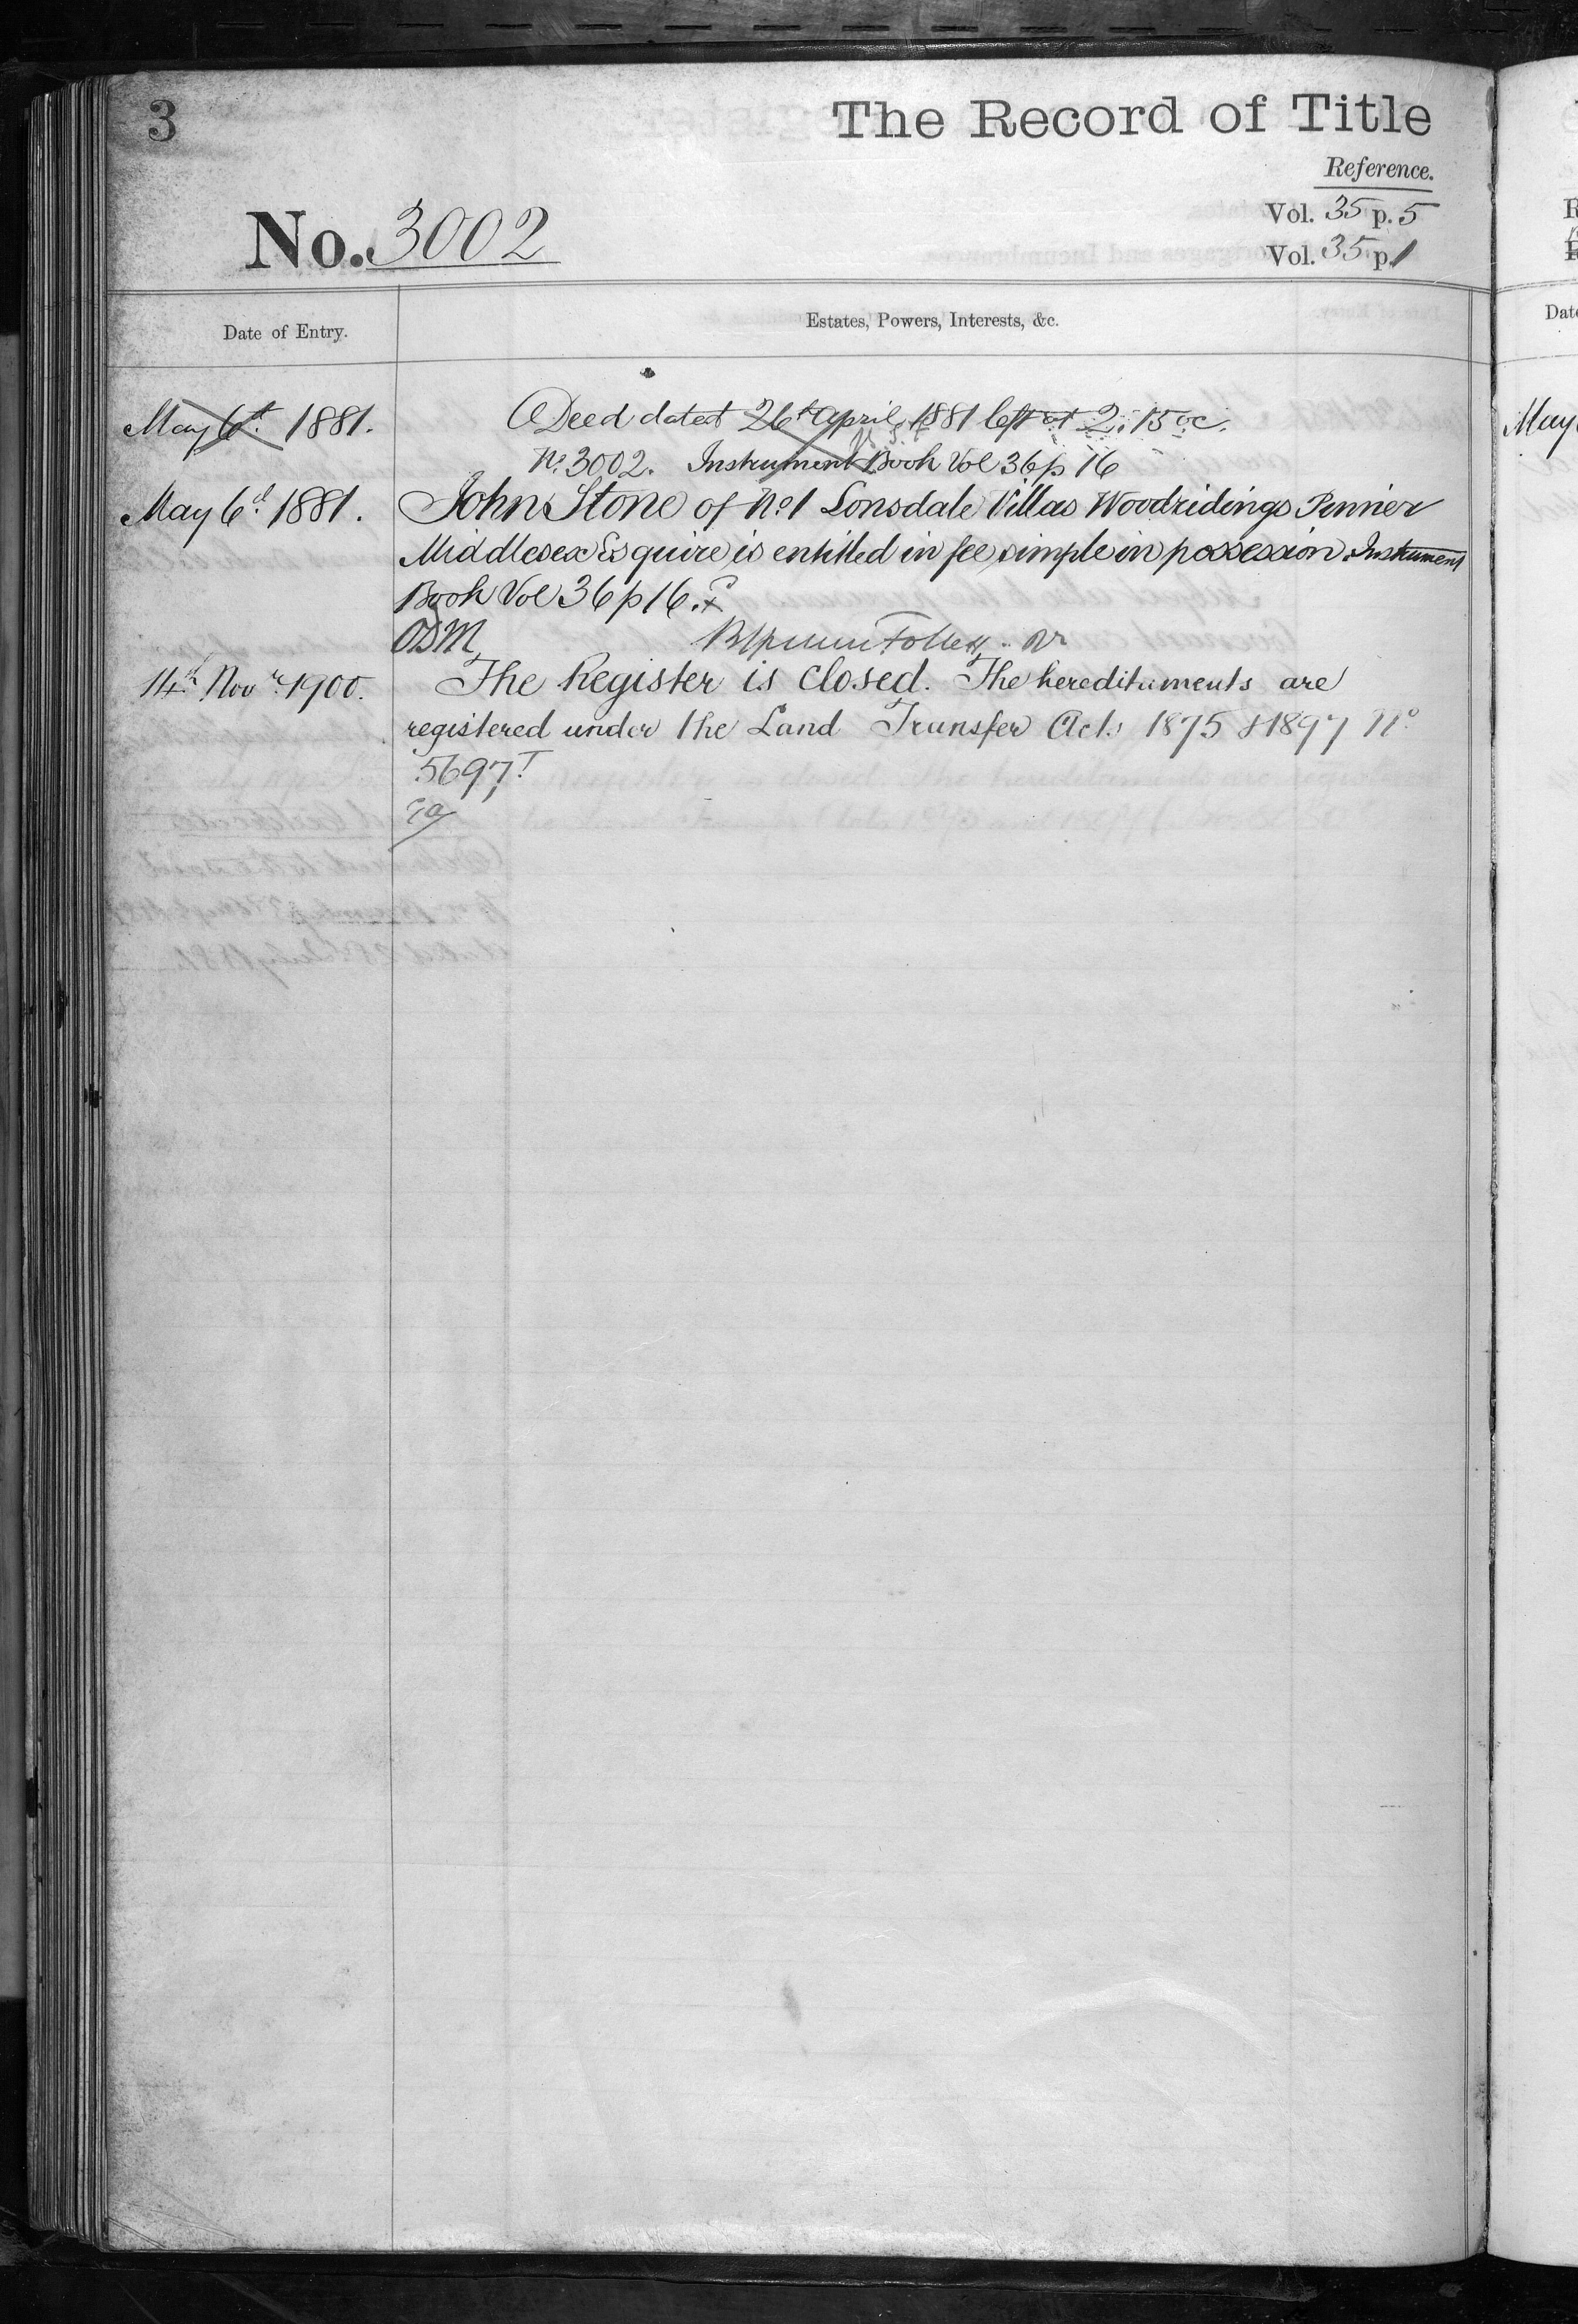 3
The Record of Title
Reference.
No. 3002
Vol. 35 p. 5
Vol. 35 p. 1
Date of Entry.
Estates, Powers, Interests, &c.
May 6th 1881.
Deed dated 26th April 1881 left at 2.15 oc.
No 3002. Instrument Book Vol 36 p 16
May 6th 1881.
John Stone of No 1 Lonsdale Villas Woodridings Pinner
Middlesex Esquire is entitled in fee simple in possession. Instrument
Book Vol 36 p 16.
ODM
14th Novr 1900.
The Register is closed. The hereditaments are
registered under the Land Transfer Acts 1875 & 1897 No
5697
Date
May